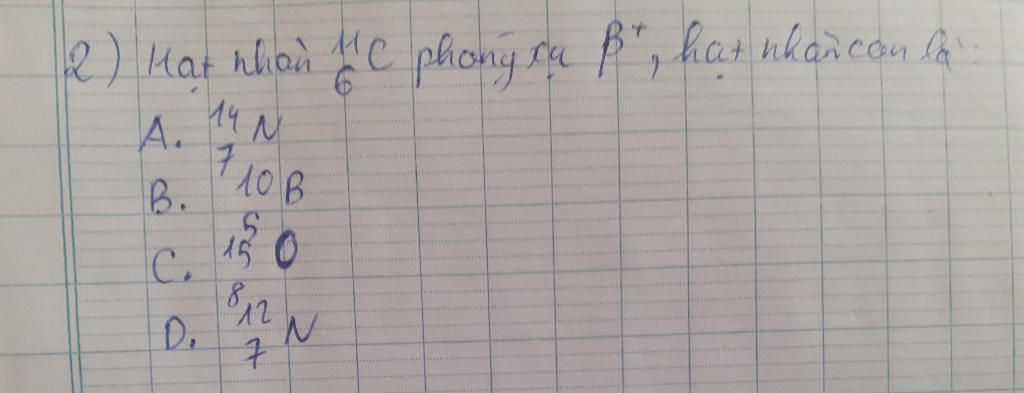 2) Hạt nhân ¹¹₆C phóng xạ β⁺, hạt nhân con là:
A. ¹⁴₇N
B. ¹⁰₅B
C. ¹⁵₈O
D. ¹²₇N